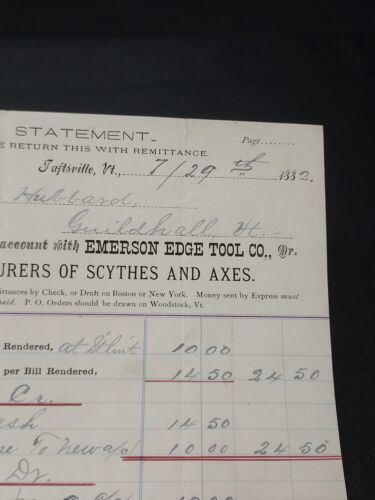 STATEMENT.
E RETURN THIS WITH REMITTANCE.
Page........
Taftsville, Vt., 7/29 th 1882.
Hubbard,
Guildhall, Vt.
account with EMERSON EDGE TOOL CO., Dr.
URERS OF SCYTHES AND AXES.
ittances by Check, or Draft on Boston or New York. Money sent by Express must
paid. P. O. Orders should be drawn on Woodstock, Vt.
Rendered, 10 00
per Bill Rendered, 14 50 24 50
Cr.
ash 14 50
To new a/c 10 00 24 50
Dr.